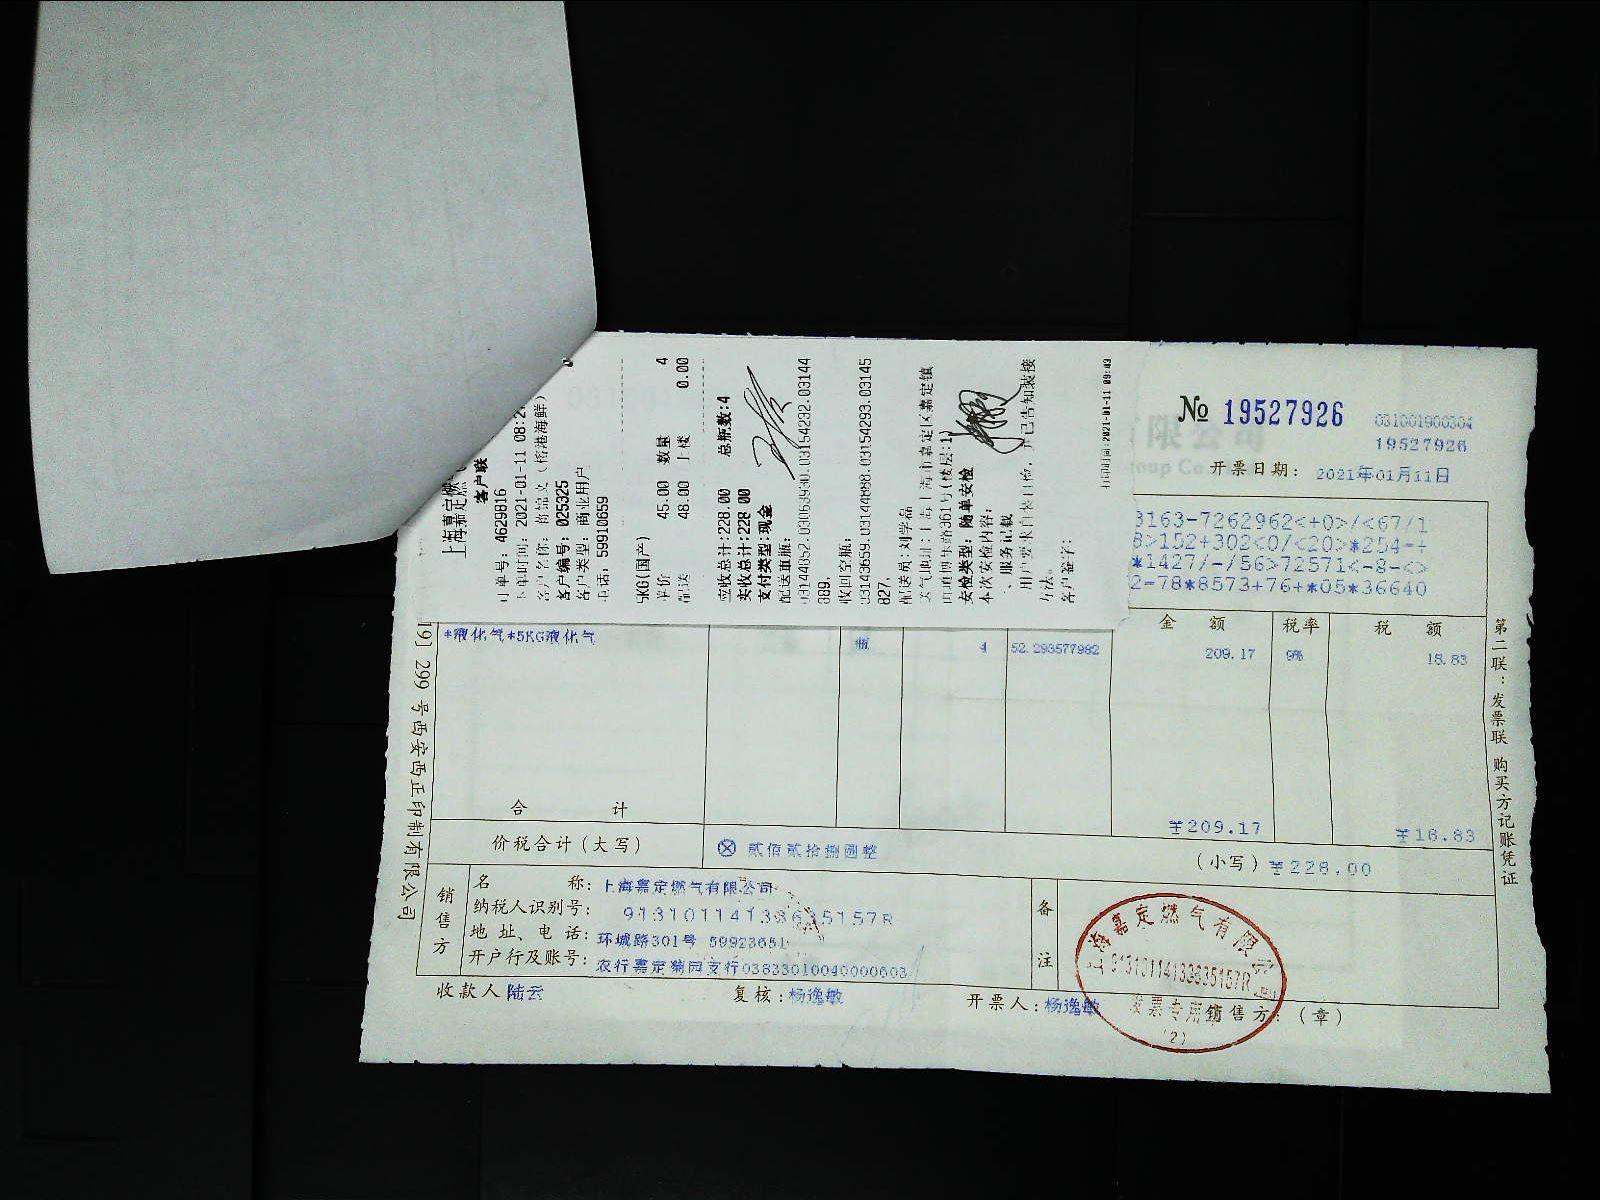 上海嘉定燃
客户联
订单号: 4629816
下单时间: 2021-01-11 08:2
(榕港海鲜)
客户编号: 025325
客户类型: 商业用户
电话: 59910659
5KG(国产)
单价 45.00 数量 4
配送 48.00 上楼 0.00
应收总计:228.00 总瓶数:4
实收总计:228.00
支付类型:现金
配送重瓶:
03144852.03063930.03154232.03144
889.
收回空瓶:
03143659.03144888.03154293.03145
827.
配送员:刘学磊
安检类型: 随单安检
本次安检内容:
、服务记载
用户要求自装自检, 并已告知装接
方法。
客户签字:
打印时间:2021-01-11 09:43
№ 19527926
031001900304
19527926
开票日期: 2021年01月11日
3163-7262962<+0>/<67/1
8>152+302<0/<20>*254-+
*1427/-/56>72571<-8-<>
2-78*8573+76+*05*36640
金 额 税率 税 额
*液化气*5KG液化气 瓶 4 52.293577982 209.17 9% 18.83
合 计 ¥209.17 ¥18.83
价税合计(大写) ⊗ 贰佰贰拾捌圆整 (小写) ¥228.00
销售方
名 称: 上海嘉定燃气有限公司
纳税人识别号: 91310114133635157R
地 址、电 话: 环城路301号 59923651
开户行及账号: 农行嘉定菊园支行03833010040000603
备注
收款人 陆云 复核: 杨逸敏 开票人: 杨逸敏 销售方:(章)
上海嘉定燃气有限公
91310114133635157R
发票专用章
(2)
19] 299 号西安西正印制有限公司
第二联:发票联 购买方记账凭证